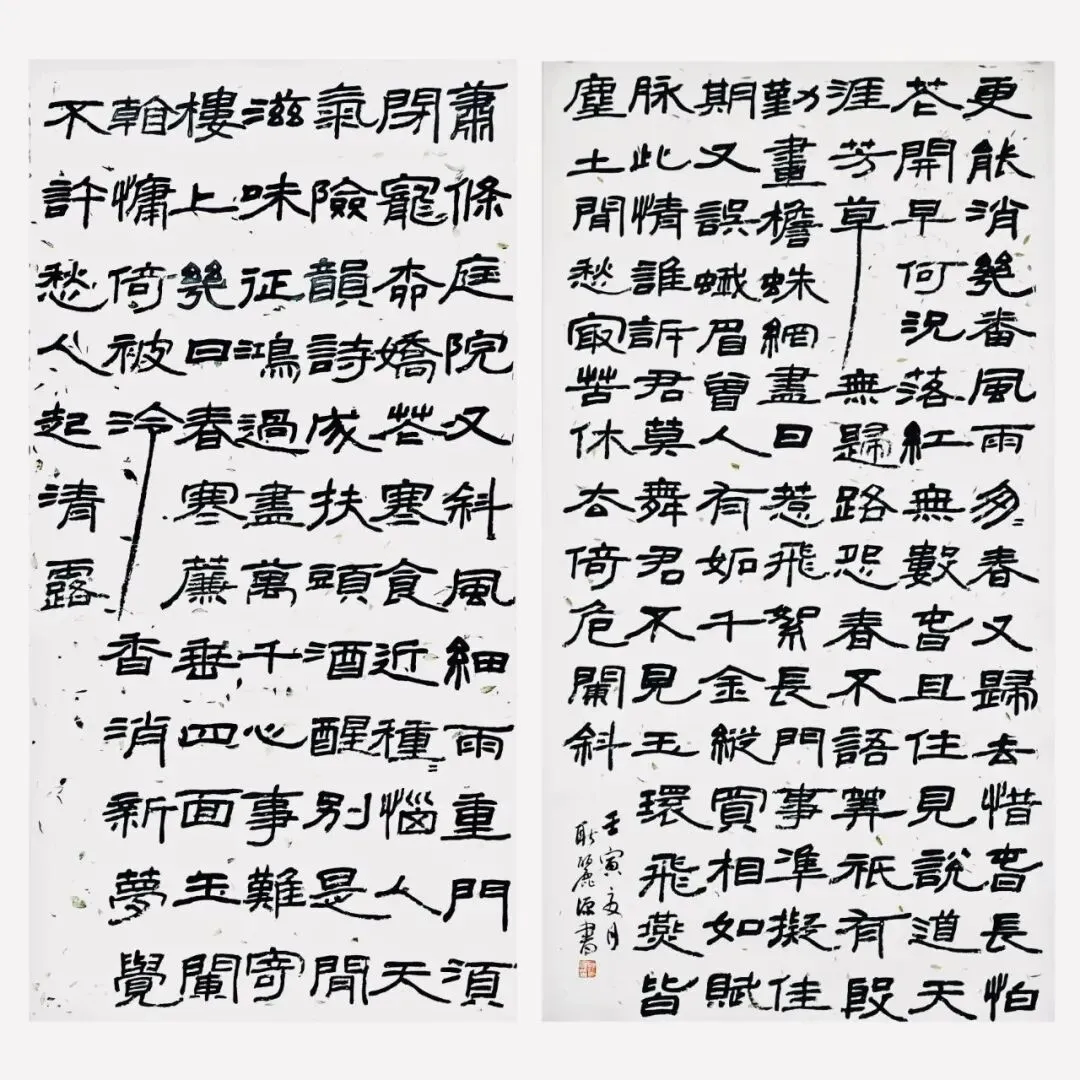 更能消幾番風雨匆〻春又歸去惜春長怕
花開早何況落紅無數春且住見說道天
涯芳草無歸路怨春不語算祇有殷
勤畫檐蛛網盡日惹飛絮長門事準擬佳
期又誤蛾眉曾人有妬千金縱買相如賦
脉此情誰訴君莫舞君不見玉環飛燕皆
塵土閒愁最苦休去倚危闌斜
壬寅夏月
耿麗源書
蕭條庭院又斜風細雨重門須
閉寵柳嬌花寒食近種〻惱人天
氣險韻詩成扶頭酒醒別是閒
滋味征鴻過盡萬千心事難寄
樓上幾日春寒簾垂四面玉闌
幹慵倚被冷香消新夢覺
不許愁人起清露